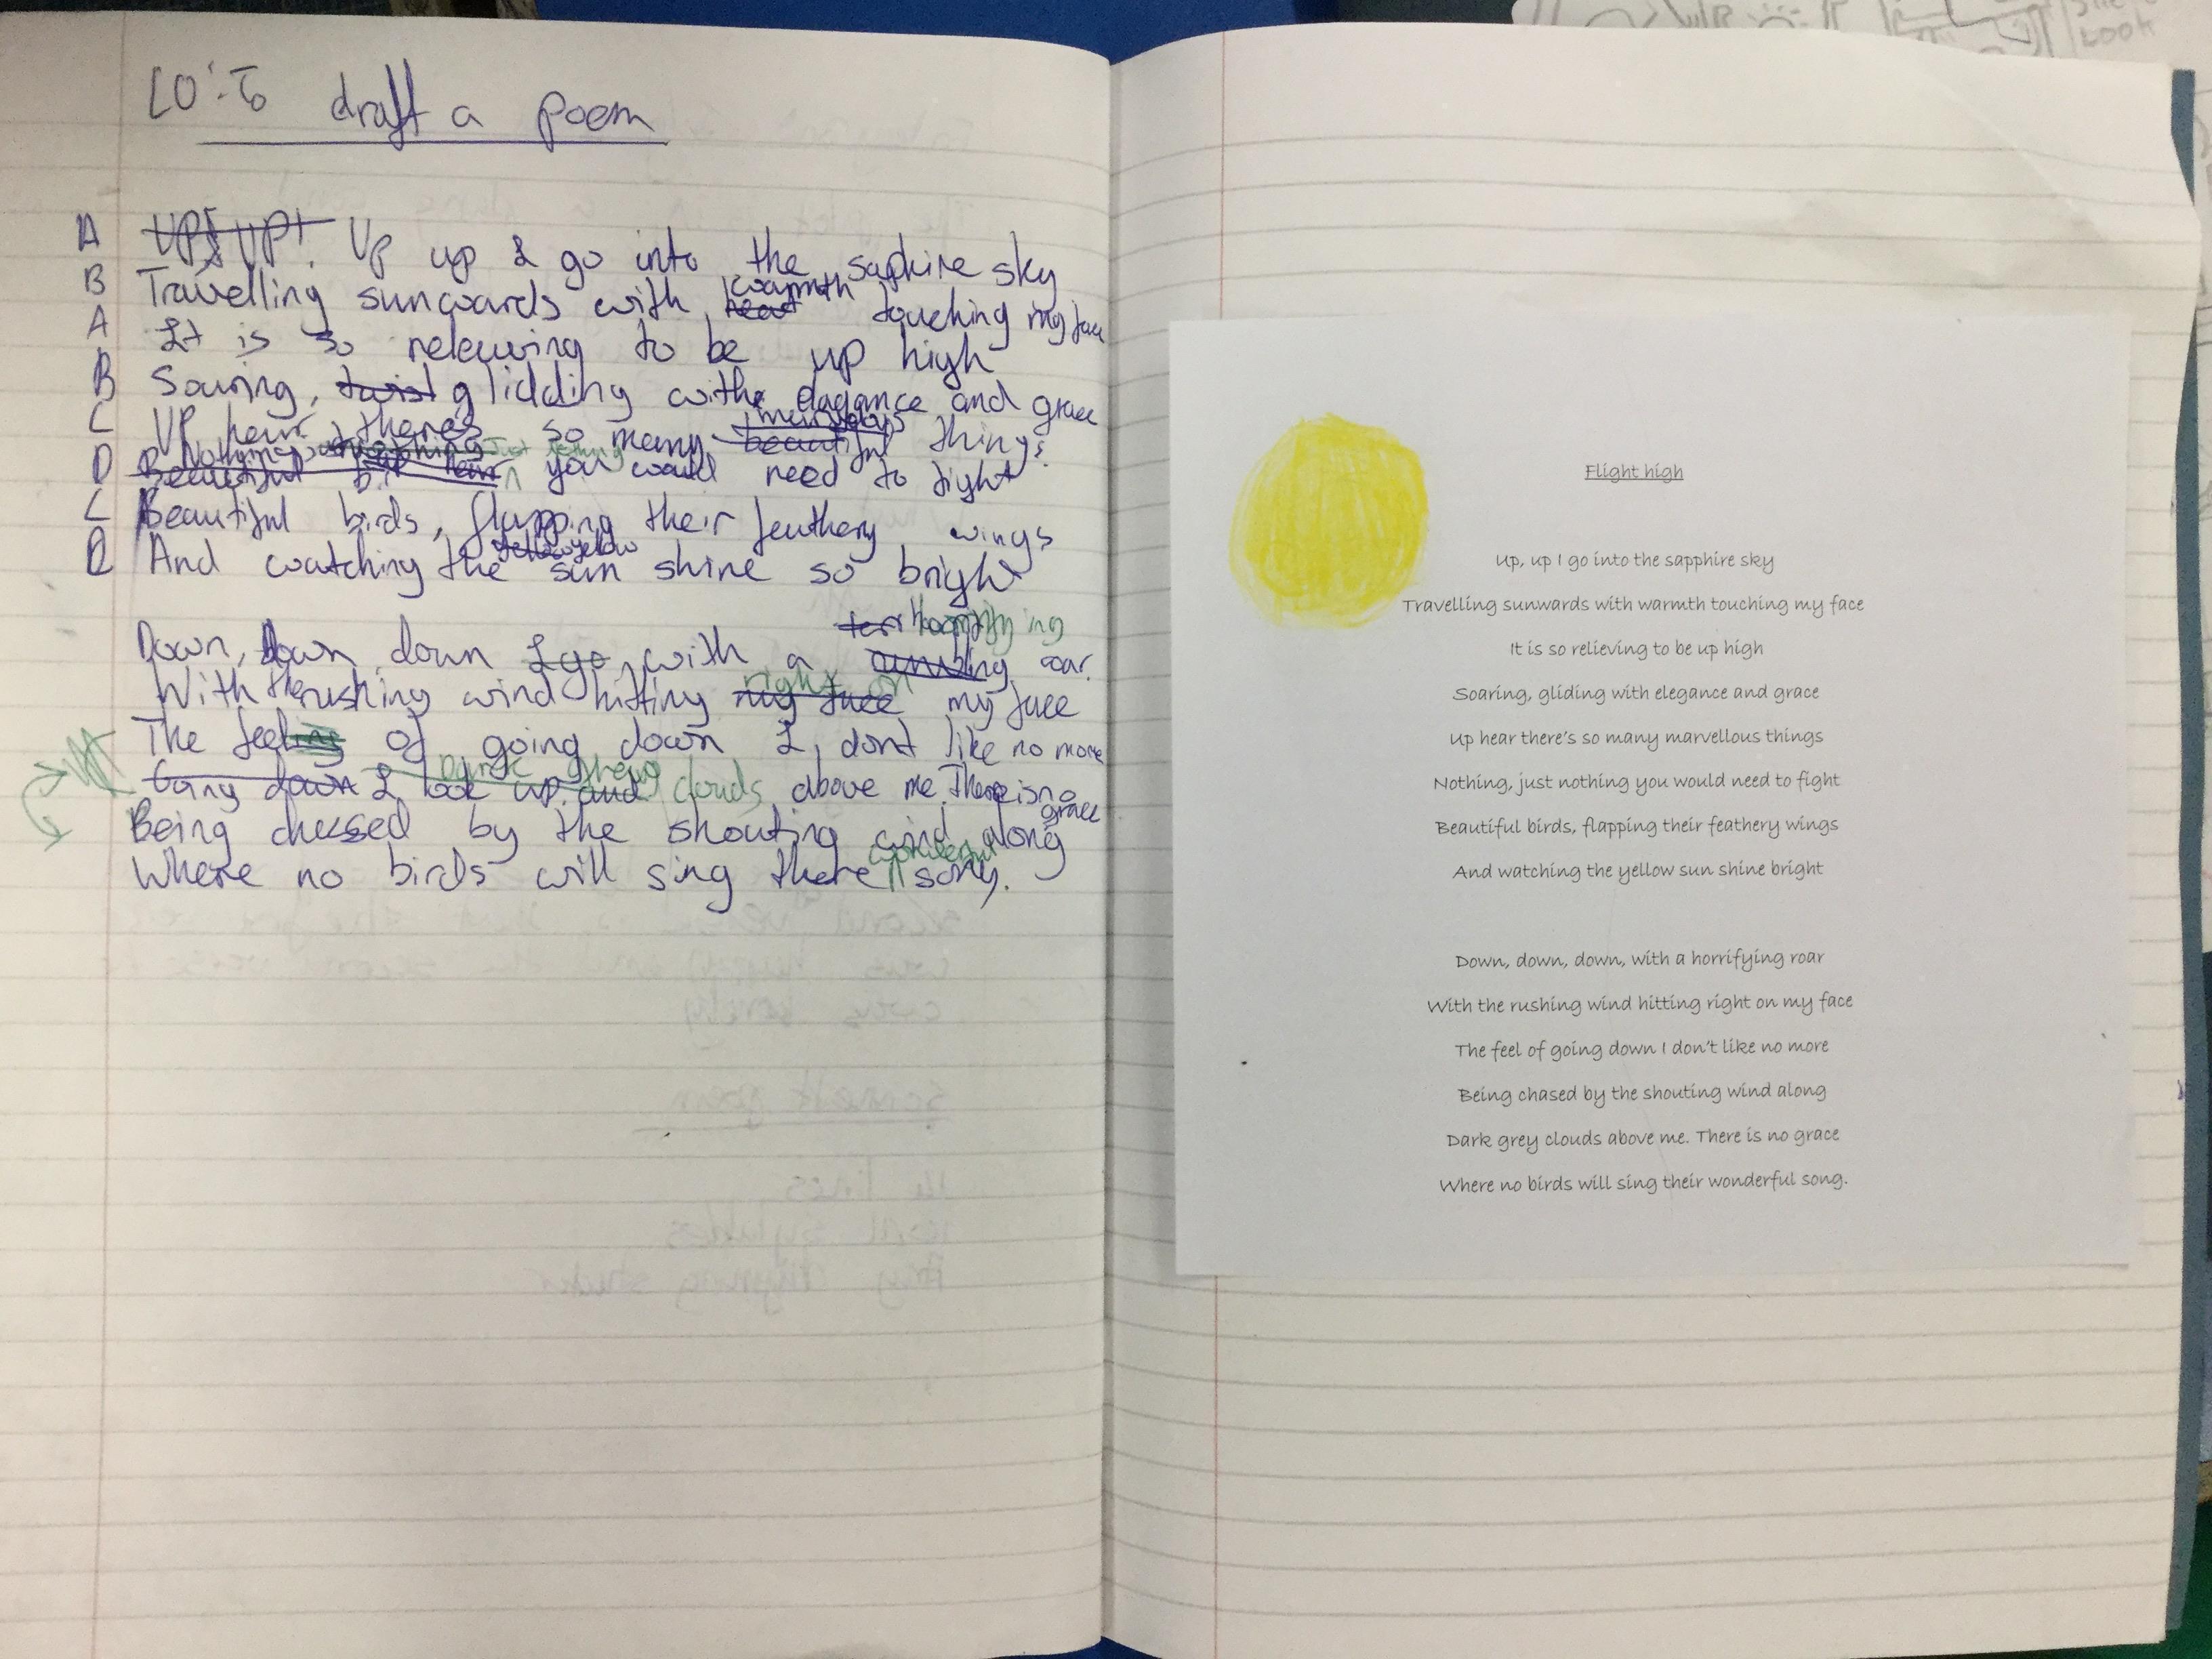 LO:- To draft a poem
A UP! UP! Up up I go into the saphire sky
B Travelling sunwards with heat warmth touching my face
A It is so releiving to be up high
B Soaring, twist glidding withe elagance and grace
C UP hear theres so many beautiful marvelous things
D Beautiful Nothing Just nothing you would need to fight
C Beautiful birds, flapping their feathery wings
D And watching the yellow sun shine so bright
Down, down, down I go, with a horrifying roar.
With the rushing wind hitting my face right on my face
The feeling of going down I, dont like no more
Going down I look up and Dark grey clouds above me. There is no grace
Being chassed by the shouting wind along
Where no birds will sing there wonderful song.
Flight high
Up, up I go into the sapphire sky
Travelling sunwards with warmth touching my face
It is so relieving to be up high
Soaring, gliding with elegance and grace
Up hear there's so many marvellous things
Nothing, just nothing you would need to fight
Beautiful birds, flapping their feathery wings
And watching the yellow sun shine bright
Down, down, down, with a horrifying roar
With the rushing wind hitting right on my face
The feel of going down I don't like no more
Being chased by the shouting wind along
Dark grey clouds above me. There is no grace
Where no birds will sing their wonderful song.